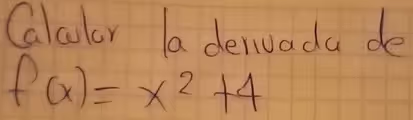 Calcular la derivada de
f(x) = x² + 4